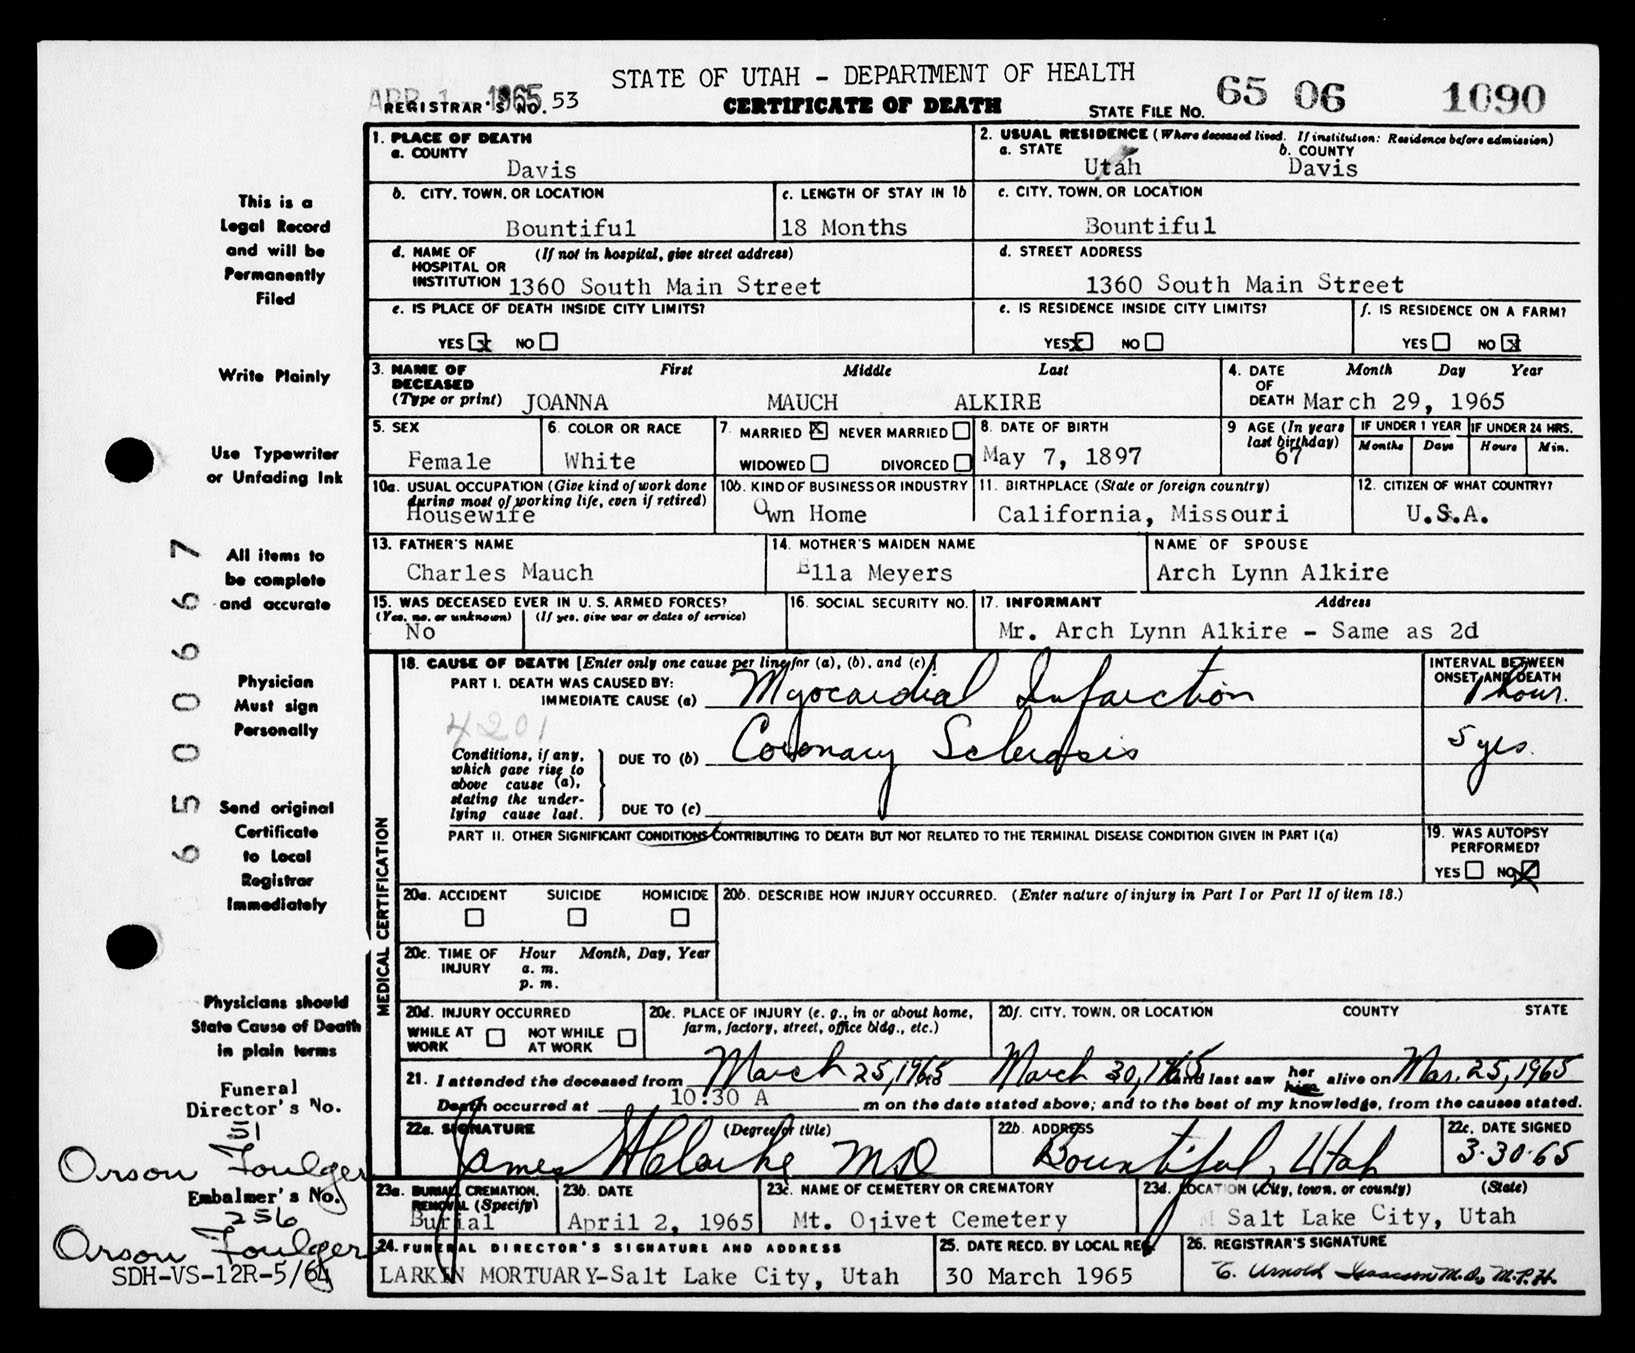 STATE OF UTAH - DEPARTMENT OF HEALTH
APR 1 1965
REGISTRAR'S NO. 53
CERTIFICATE OF DEATH
STATE FILE NO. 65 06 1090
1. PLACE OF DEATH
a. COUNTY
Davis
2. USUAL RESIDENCE (Where deceased lived. If institution: Residence before admission)
a. STATE b. COUNTY
Utah Davis
b. CITY, TOWN, OR LOCATION
Bountiful
c. LENGTH OF STAY IN 1b
18 Months
c. CITY, TOWN, OR LOCATION
Bountiful
d. NAME OF HOSPITAL OR INSTITUTION (If not in hospital, give street address)
1360 South Main Street
d. STREET ADDRESS
1360 South Main Street
e. IS PLACE OF DEATH INSIDE CITY LIMITS?
YES x NO
e. IS RESIDENCE INSIDE CITY LIMITS?
YES x NO
f. IS RESIDENCE ON A FARM?
YES NO x
3. NAME OF DECEASED (Type or print) First Middle Last
JOANNA MAUCH ALKIRE
4. DATE OF DEATH Month Day Year
March 29, 1965
5. SEX
Female
6. COLOR OR RACE
White
7. MARRIED x NEVER MARRIED
WIDOWED DIVORCED
8. DATE OF BIRTH
May 7, 1897
9 AGE (In years last birthday)
67
IF UNDER 1 YEAR IF UNDER 24 HRS.
Months Days Hours Min.
10a. USUAL OCCUPATION (Give kind of work done during most of working life, even if retired)
Housewife
10b. KIND OF BUSINESS OR INDUSTRY
Own Home
11. BIRTHPLACE (State or foreign country)
California, Missouri
12. CITIZEN OF WHAT COUNTRY?
U.S.A.
13. FATHER'S NAME
Charles Mauch
14. MOTHER'S MAIDEN NAME
Ella Meyers
NAME OF SPOUSE
Arch Lynn Alkire
15. WAS DECEASED EVER IN U. S. ARMED FORCES?
(Yes, no, or unknown) (If yes, give war or dates of service)
No
16. SOCIAL SECURITY NO.
17. INFORMANT Address
Mr. Arch Lynn Alkire - Same as 2d
MEDICAL CERTIFICATION
18. CAUSE OF DEATH [Enter only one cause per line for (a), (b), and (c)]
INTERVAL BETWEEN ONSET AND DEATH
PART I. DEATH WAS CAUSED BY:
IMMEDIATE CAUSE (a) Myocardial Infarction 1 hour.
4201
Conditions, if any, which gave rise to above cause (a), stating the underlying cause last.
DUE TO (b) Coronary Sclerosis 5 yrs.
DUE TO (c)
PART II. OTHER SIGNIFICANT CONDITIONS CONTRIBUTING TO DEATH BUT NOT RELATED TO THE TERMINAL DISEASE CONDITION GIVEN IN PART I(a)
19. WAS AUTOPSY PERFORMED?
YES NO x
20a. ACCIDENT SUICIDE HOMICIDE
20b. DESCRIBE HOW INJURY OCCURRED. (Enter nature of injury in Part I or Part II of item 18.)
20c. TIME OF INJURY Hour Month, Day, Year
a. m.
p. m.
20d. INJURY OCCURRED
WHILE AT WORK NOT WHILE AT WORK
20e. PLACE OF INJURY (e. g., in or about home, farm, factory, street, office bldg., etc.)
20f. CITY, TOWN, OR LOCATION COUNTY STATE
21. I attended the deceased from March 25, 1965 March 30, 1965 and last saw her him alive on Mar. 25, 1965
Death occurred at 10:30 A m on the date stated above; and to the best of my knowledge, from the causes stated.
22a. SIGNATURE (Degree or title)
James H Clarke MD
22b. ADDRESS
Bountiful, Utah
22c. DATE SIGNED
3-30-65
23a. BURIAL, CREMATION, REMOVAL (Specify)
Burial
23b. DATE
April 2, 1965
23c. NAME OF CEMETERY OR CREMATORY
Mt. Olivet Cemetery
23d. LOCATION (City, town, or county) (State)
Salt Lake City, Utah
24. FUNERAL DIRECTOR'S SIGNATURE AND ADDRESS
LARKIN MORTUARY-Salt Lake City, Utah
25. DATE RECD. BY LOCAL REG.
30 March 1965
26. REGISTRAR'S SIGNATURE
C. Arnold Isaacson M.D., M.P.H.
This is a
Legal Record
and will be
Permanently
Filed
Write Plainly
Use Typewriter
or Unfading Ink
All items to
be complete
and accurate
Physician
Must sign
Personally
Send original
Certificate
to Local
Registrar
Immediately
Physicians should
State Cause of Death
in plain terms
Funeral
Director's No.
51
Orson Foulger
Embalmer's No.
256
Orson Foulger
SDH-VS-12R-5/64
6500667